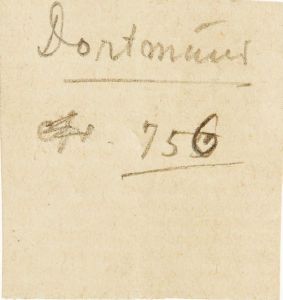 Dortmund
Nr. 756